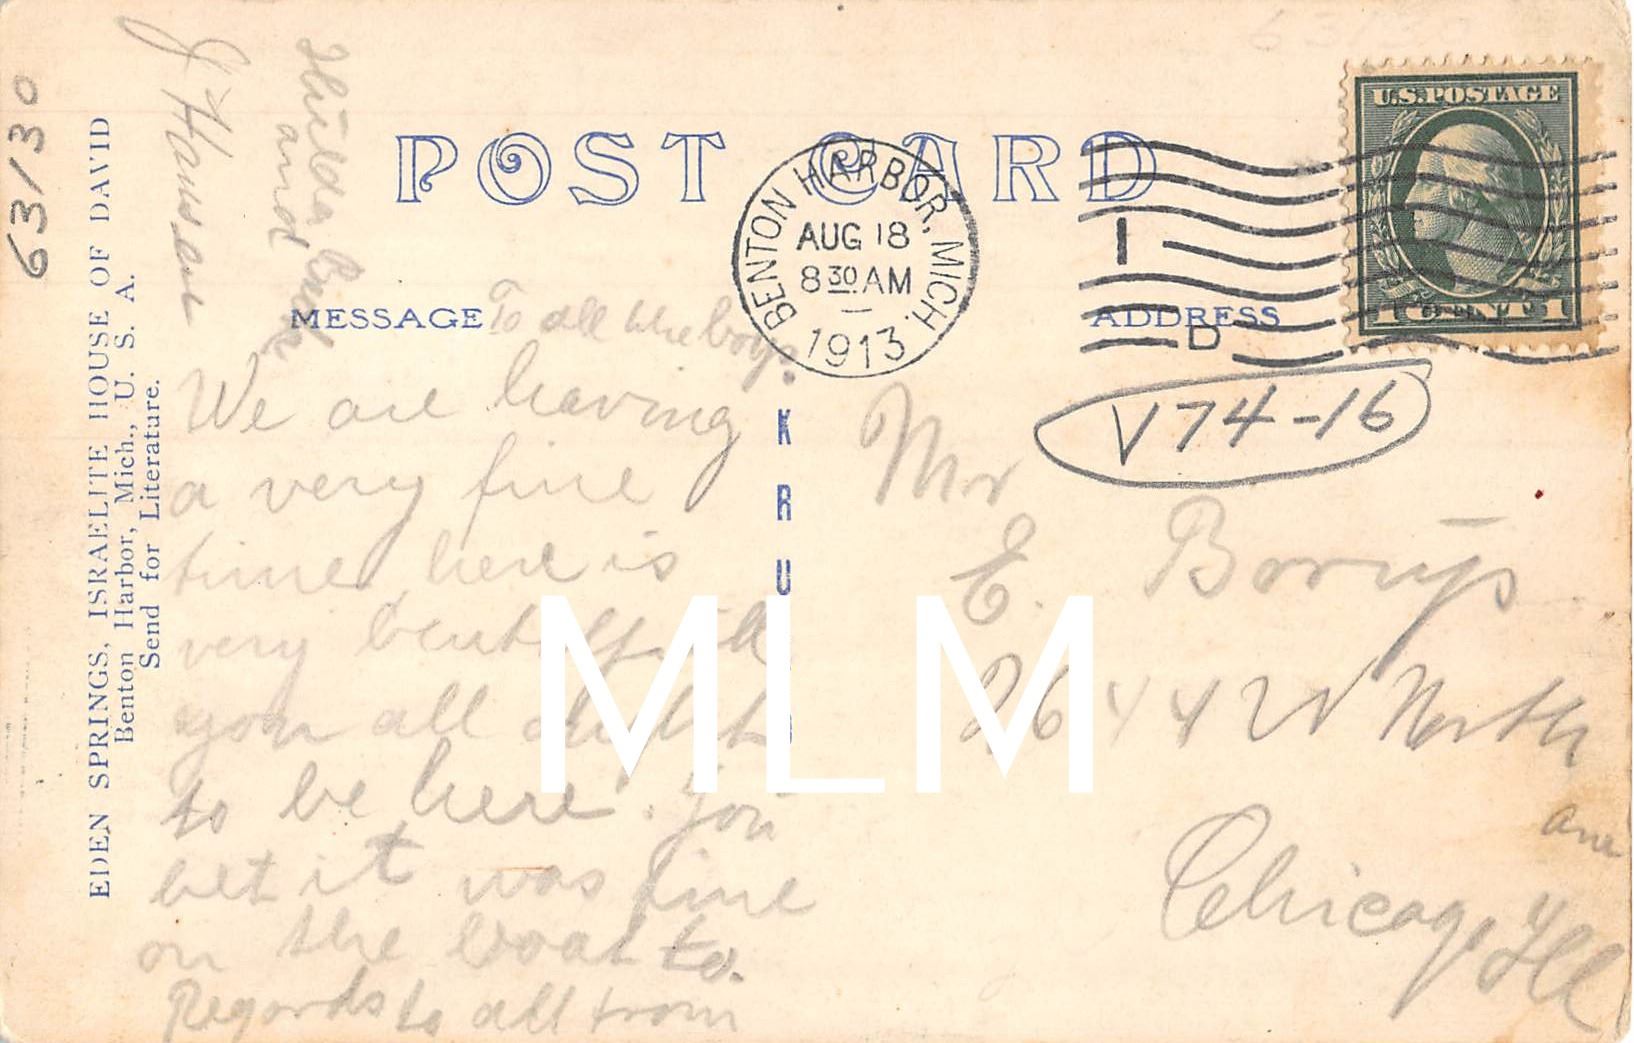 63/30
EDEN SPRINGS, ISRAELITE HOUSE OF DAVID
Benton Harbor, Mich., U. S. A.
Send for Literature.
POST CARD
BENTON HARBOR, MICH.
AUG 18
8 30 AM
1913
1
D
U.S. POSTAGE
1 CENT 1
MESSAGE
ADDRESS
V74-16
KRU
To all the boys.
We are having
a very fine
time here is
very
you all
to be here. You
bet it was fine
on the boat to.
Regards to all from
and
J Hansen
Mr
E. Borrup
2644 W North
ave
Chicago Ill
MLM